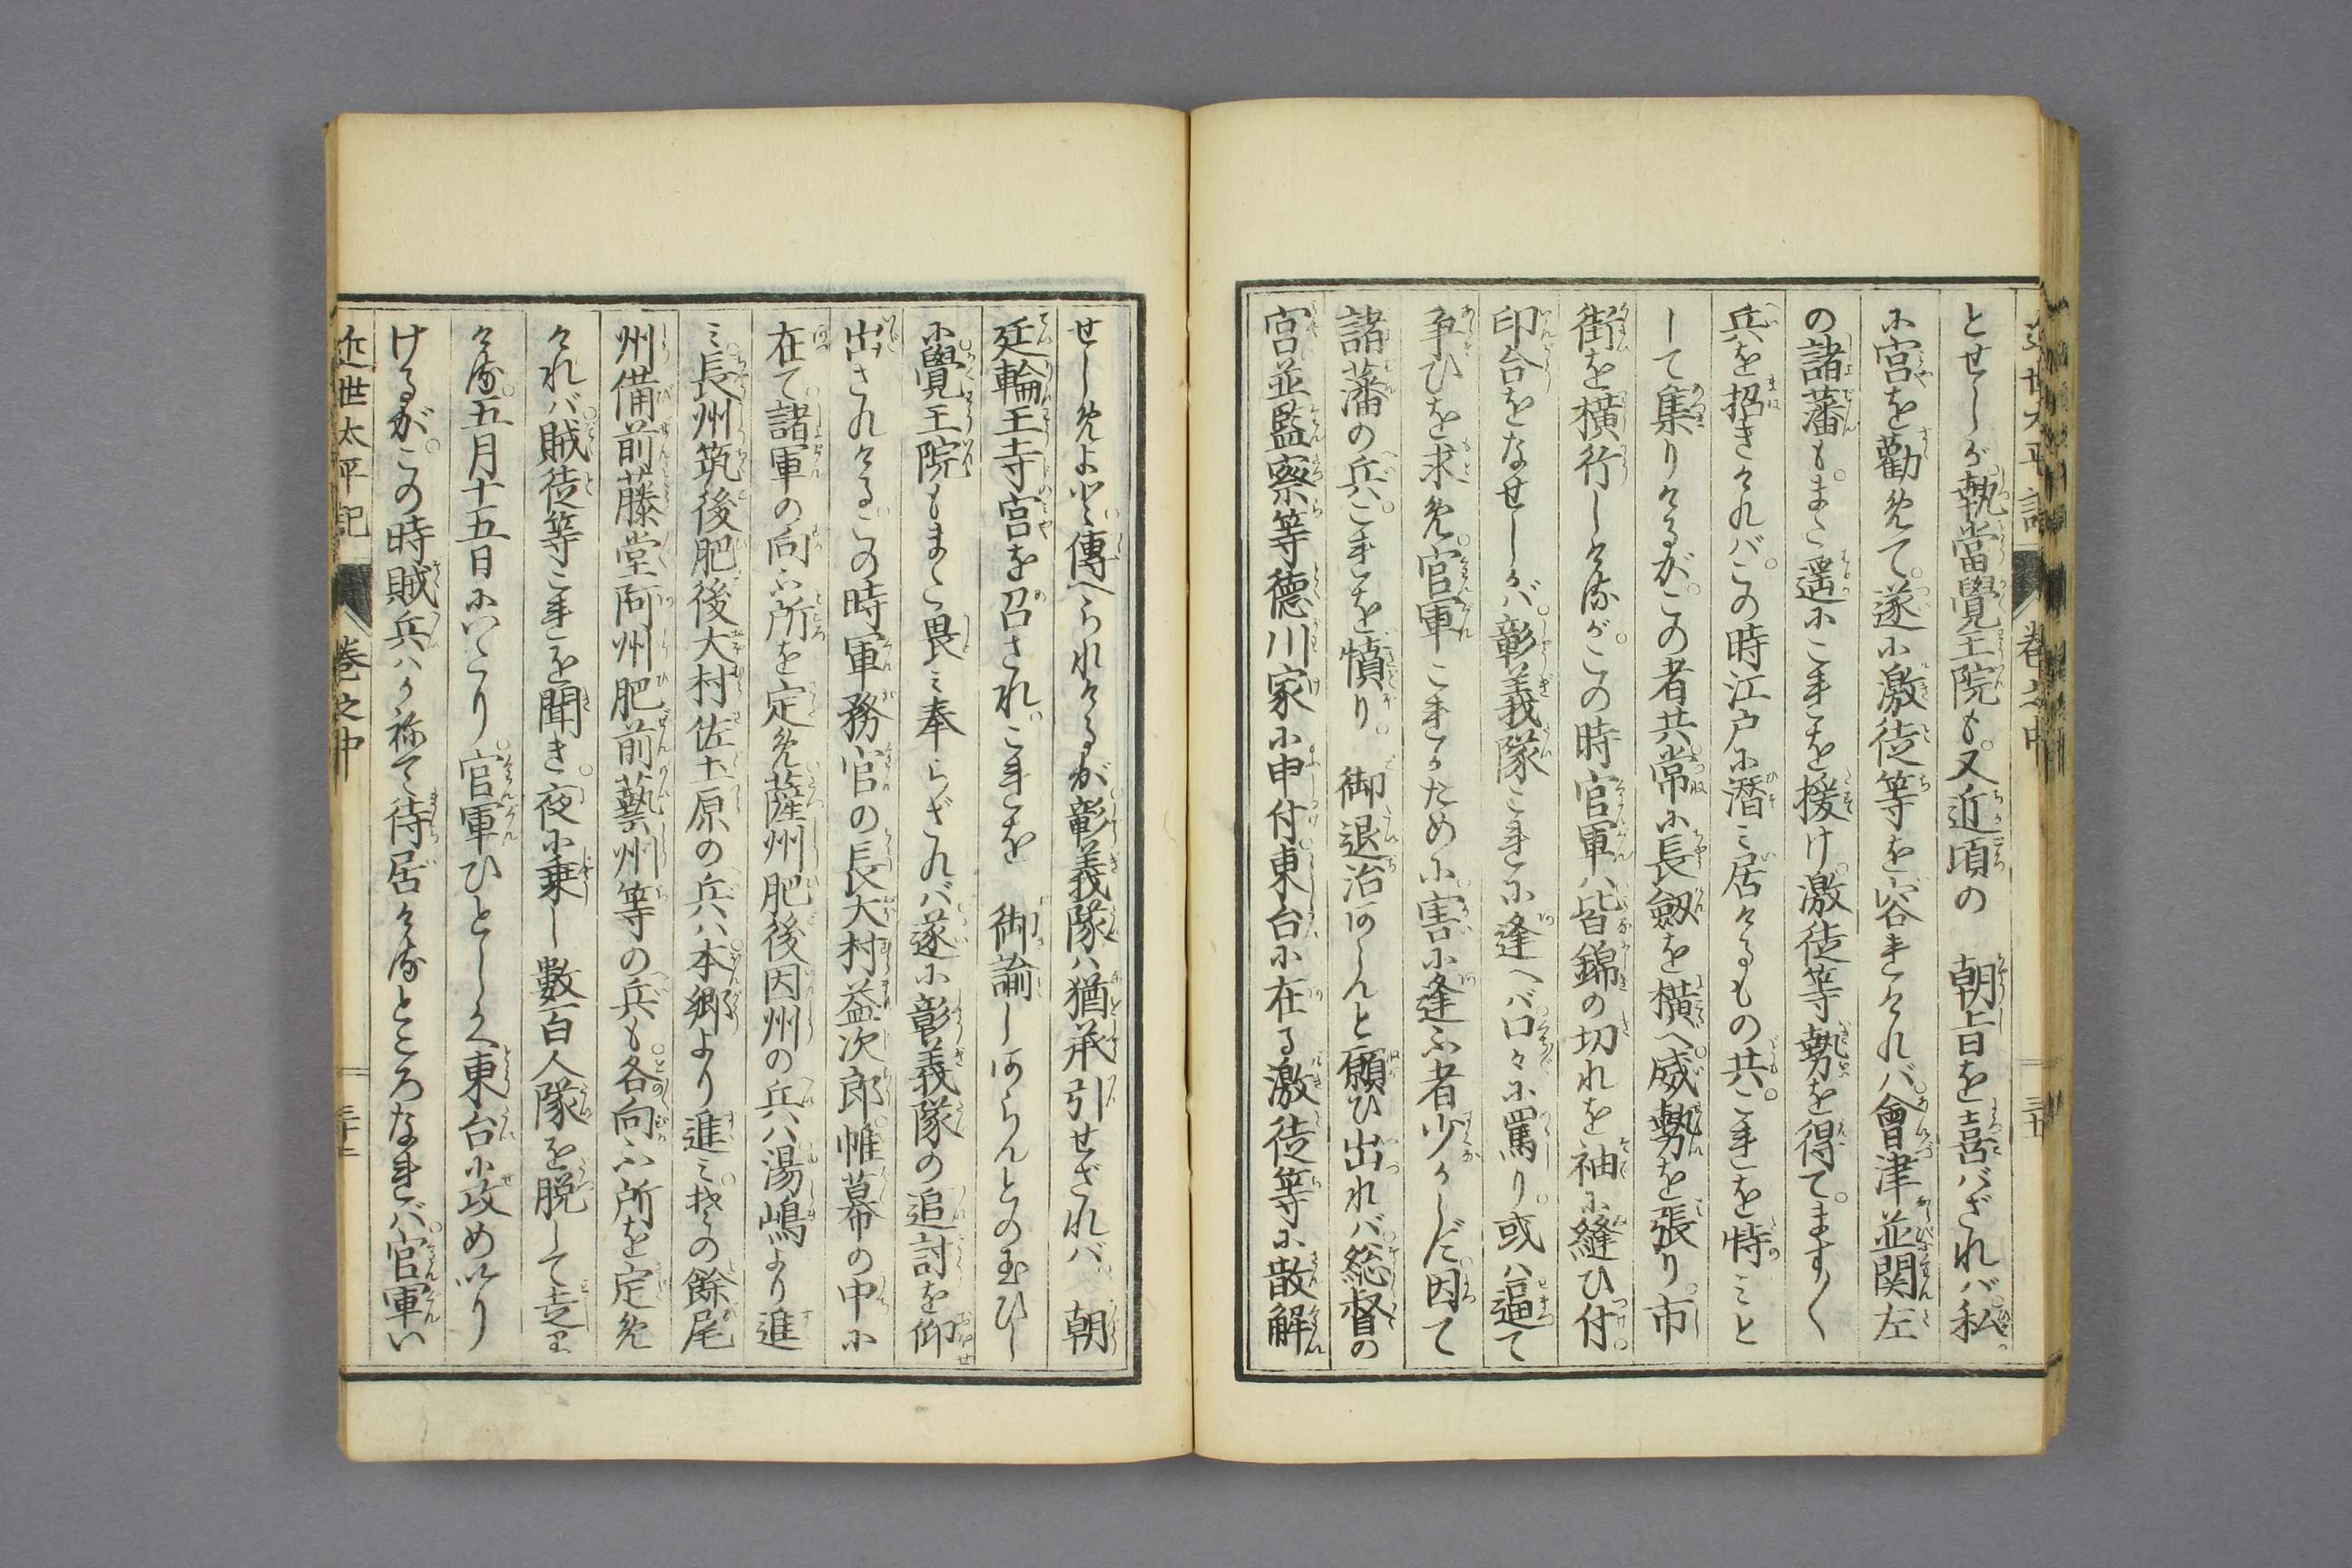 とせしが執當覺王院も又近頃の　朝上日を喜バざれバ私
に宮を勸めて遂に激徒等を容れけれバ會津並関左
の諸藩もまた遥にこれを援け激徒等勢を得てます〱
兵を招きけれバこの時江戸に潜ミ居けるもの共これを恃ミと
して集りけるがこの者共常に長劔を横へ威勢を張り市
街を横行しけるがこの時官軍ハ皆錦の切れを袖に縫ひ付
印合をなせしがバ彰義隊これに逢へバ口々に罵り或ハ逼て
争ひを求め官軍これがために害に逢ふ者少からず因て
諸藩の兵これを憤り　御退治あらんと願ひ出れバ総督の
宮並監察等徳川家に申付東台に在る激徒等に散解
せしめよと傳へられけるが彰義隊ハ猶承引せざれバ　朝
廷輪王寺宮を召されこれを　御諭しあらんとの玉ひし
に覺王院もまた畏ミ奉らざれバ遂に彰義隊の追討を仰
出されけるこの時軍務官の長大村益次郎帷幕の中に
在て諸軍の向ふ所を定め薩州肥後因州の兵ハ湯嶋より進
ミ長州筑後肥後大村佐土原の兵ハ本郷より進ミ其の餘尾
州備前藤堂阿州肥前藝州等の兵も各向ふ所を定め
けれバ賊徒等これを聞き夜に乗し數百人隊を脱して走る
ける五月十五日にいたり官軍ひとしく東台に攻めいり
けるがこの時賊兵ハかねて待居けるところなれバ官軍い
近世太平記　巻之中